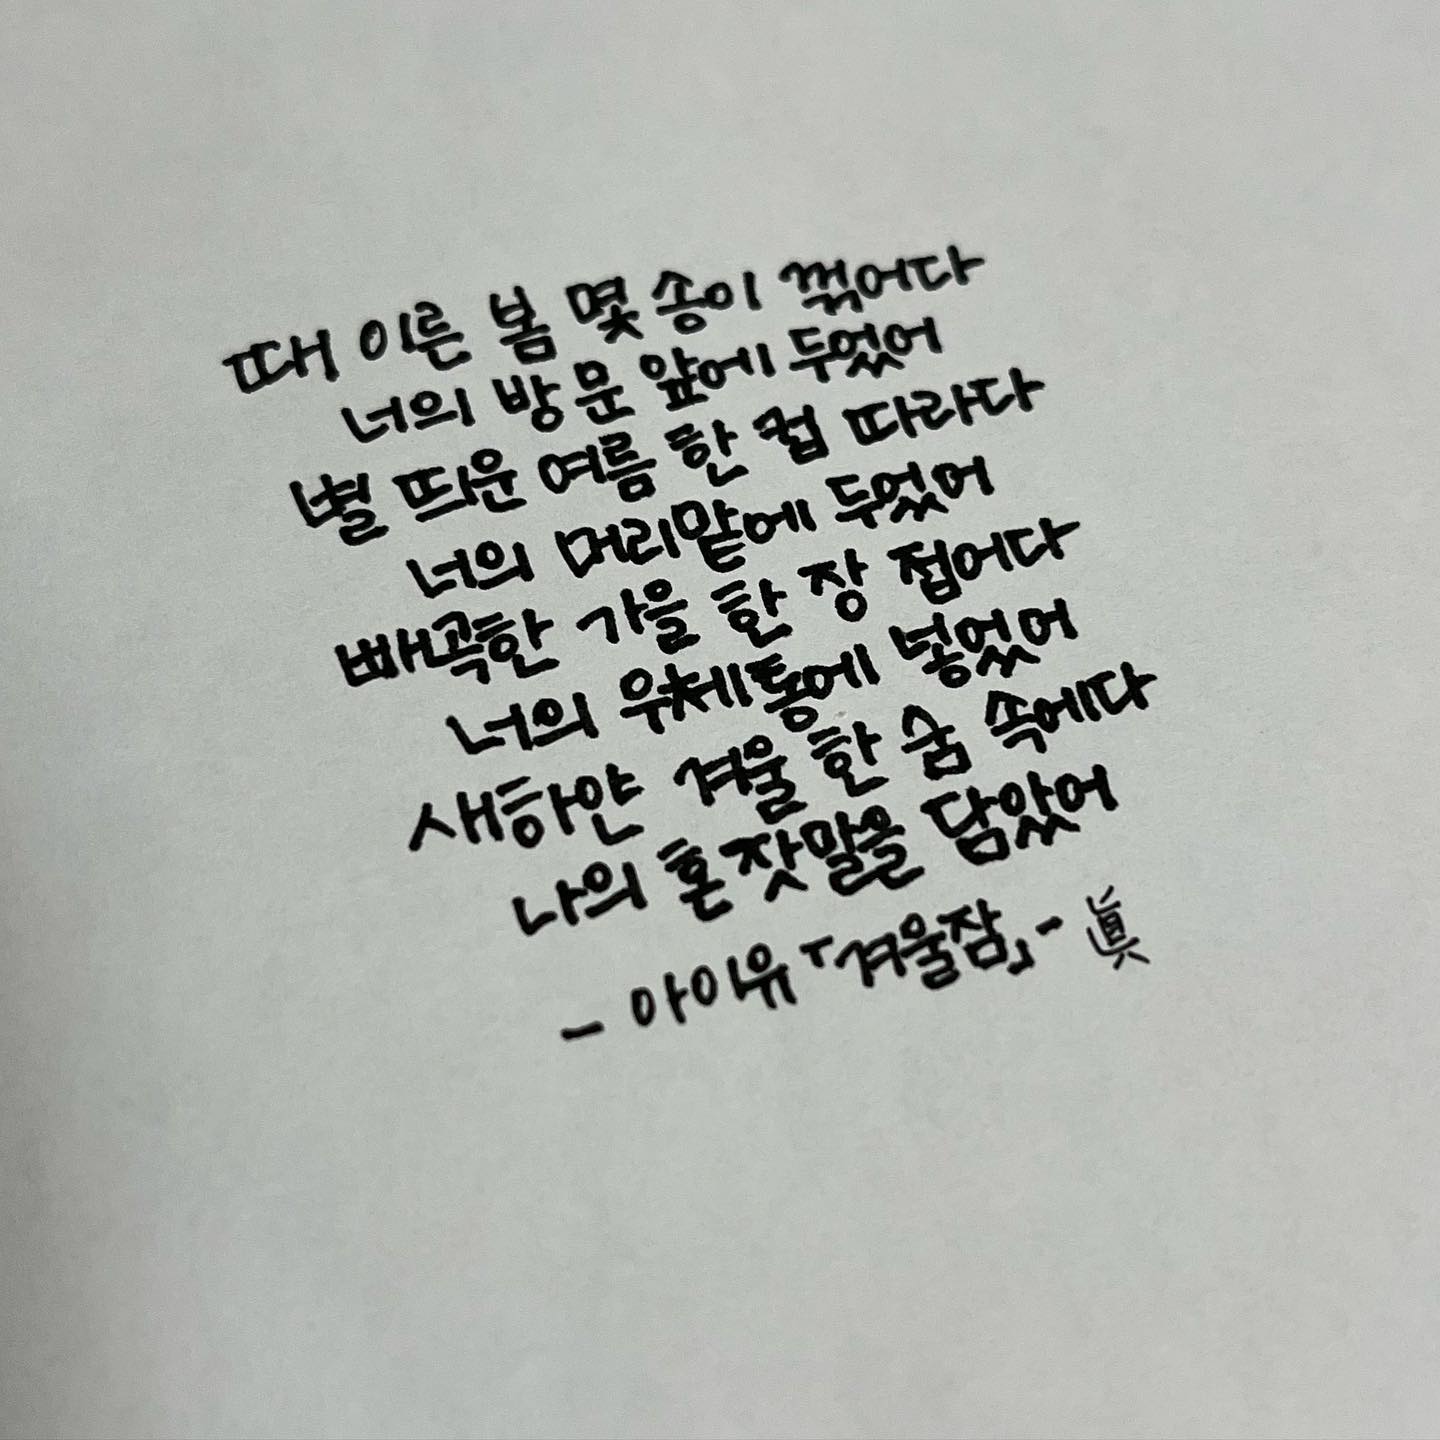 때 이른 봄 몇 송이 꺾어다
너의 방 문 앞에 두었어
별 띄운 여름 한 컵 따라다
너의 머리맡에 두었어
빼곡한 가을 한 장 접어다
너의 우체통에 넣었어
새하얀 겨울 한 숨 속에다
나의 혼잣말을 담았어
- 아이유「겨울잠」- 眞